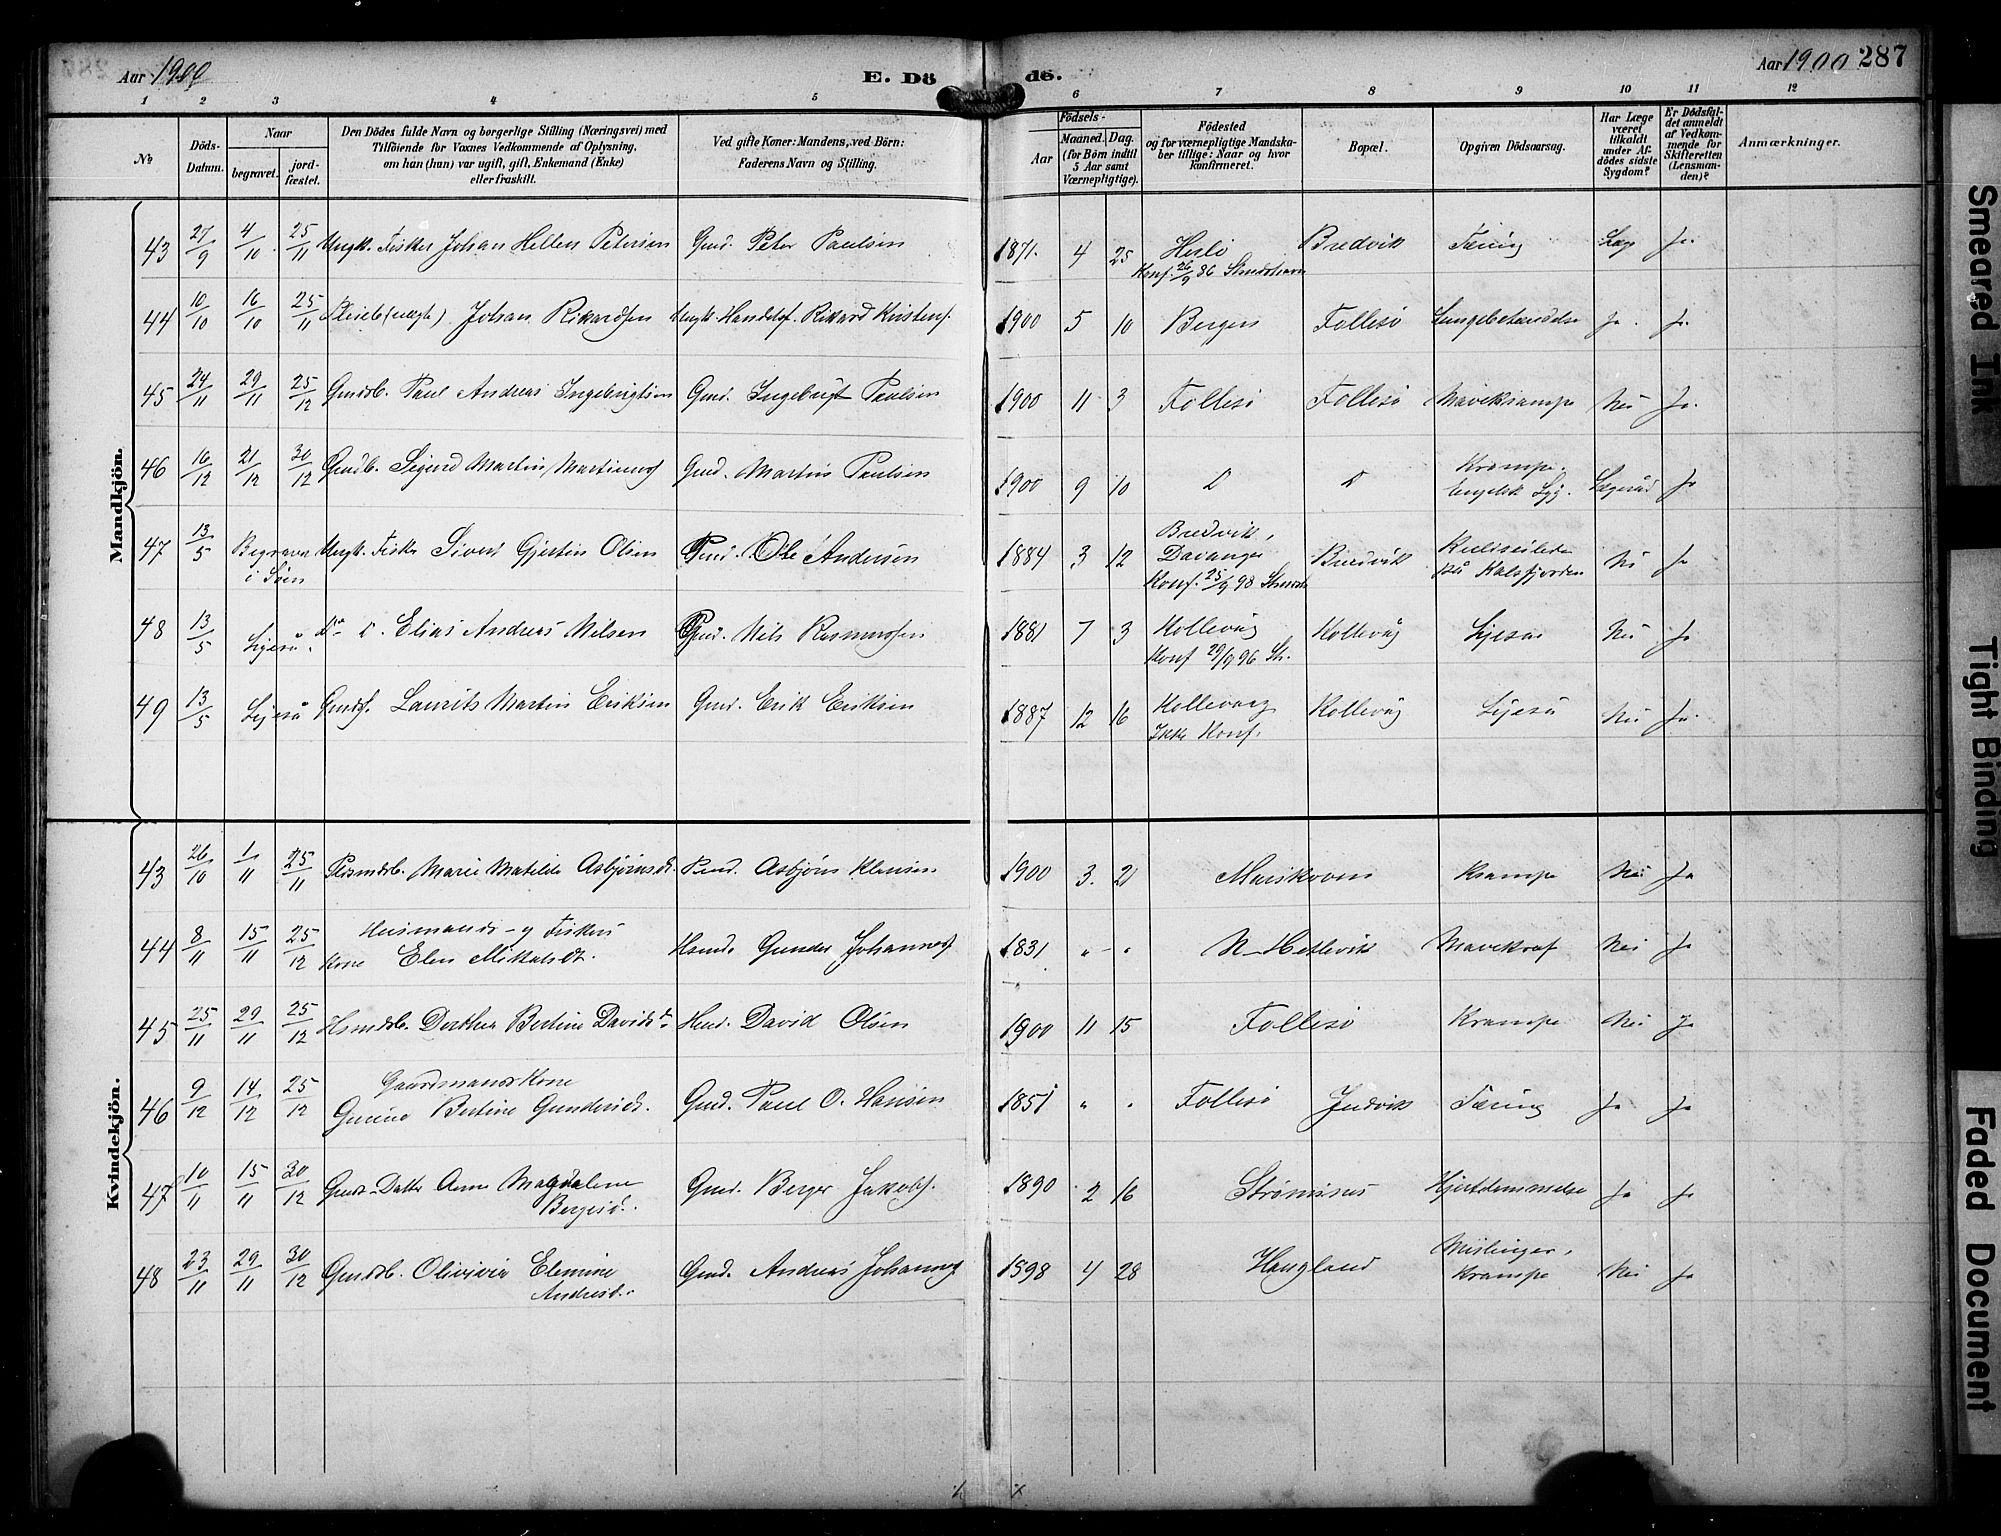 Aar 1900
E. Dö
de.
Aar 1900 287
1 2 3 4 5 6 7 8 9 10 11 12
№
Döds-Datum.
Naar
begravet.
jord-fæstet.
Den Dödes fulde Navn og borgerlige Stilling (Næringsvei) med
Tilföiende for Voxnes Vedkommende af Oplysning,
om han (hun) var ugift, gift, Enkemand (Enke)
eller fraskilt.
Ved gifte Koner: Mandens, ved Börn:
Faderens Navn og Stilling.
Födsels-
Aar
Maaned. Dag.
(for Börn indtil
5 Aar samt
Værnepligtige).
Födested
og for værnepligtige Mandska-
ber tillige: Naar og hvor
konfirmeret.
Bopæl.
Opgiven Dödsaarsag.
Har Læge
været
tilkaldt
under Af-
dödes sidste
Sygdom?
Er Dödsfal-
det anmeldt
af Vedkom-
mende for
Skifteretten
(Lensman-
den)?
Anmærkninger.
Mandkjön.
43 27/9 4/10 25/11 Ungk. Fisker Johan Hellen Petersen Gmd. Peter Paulsen 1871. 4 25 Herlö Bredvik Tæring Læge Ja.
Konf. 26/9 86
44 10/10 16/10 25/11 Pleieb (uægte) Johan Rikardsen Ungk. Rikard Kristens. 1900 5 10 Bergen Follesö Lungebetændelse Ja. Ja.
45 24/11 29/11 25/12 Gmdsb. Paul Andreas Ingebrigtsen Gmd. Ingebrigt Paulsen 1900 11 3 Follesö Follesö Mavekrampe Nei Ja.
46 16/12 21/12 30/12 Gmdb. Sigurd Martin Martinus Gmd. Martin Paulsen 1900 9 10 D D Krampe.
Engelsk Syg. Ja
47 13/5 Begraven
i Söen Ungk. Fisker Sivert Gjertin Olsen Gmd. Ole Andersen 1884 3 12 Bredvik,
Davanger
Konf. 25/9 98 Bredvik Kulseilede
på Nei Ja
48 13/5 Ligeså. Do D. Elias Andreas Nilsen Gmd. Nils Rasmussen 1881 7 3 Kollevåg
Konf 29/9 96 St. Kollevåg Ligeså Nei Ja
49 13/5 Ligeså Gmds. Laurits Martin Eriksen Gmd. Erik Eriksen 1887 12 16 Kollevåg
Ikke Konf. Kollevåg Ligeså Nei Ja.
Kvindekjön.
43 26/10 1/11 25/11 Marie Matilde Asbjörnsdt. Asbjörn Klausen 1900 3. 21 Krampe Nei Ja
44 8/11 15/11 25/12 Husmands- og Fiskers
Kone Elen Mikalsdt. Hsmd. Gunder Johannes 1831 " - " N-Hetlevik Nei Ja
45 25/11 29/11 25/12 Hsmdsb. Dorthea Bertine Davidsdt. Hmd. David Olsen 1900 11 15 Follesö Krampe Nei Ja
46 9/12 14/12 25/12 Gaardmandskone
Bertine Gundersdt. Gmd. Paul O. Hansen 1851 " " Follesö Judvik Tæring Ja Ja
47 10/11 15/11 30/12 Gmds-Datter Anne Magdalene
Bergesd. Gmd. Berger Jakobs. 1890 2 16 Strömsnes Hjertelammelse Ja Ja
48 23/11 29/11 30/12 Gmdsb. Olivivia Elemine
Andresd. Gmd. Andreas Johannes 1898 4 28 Haugland Mislinger,
Krampe Nei Ja
Smeared Ink
Tight Binding
Faded Document